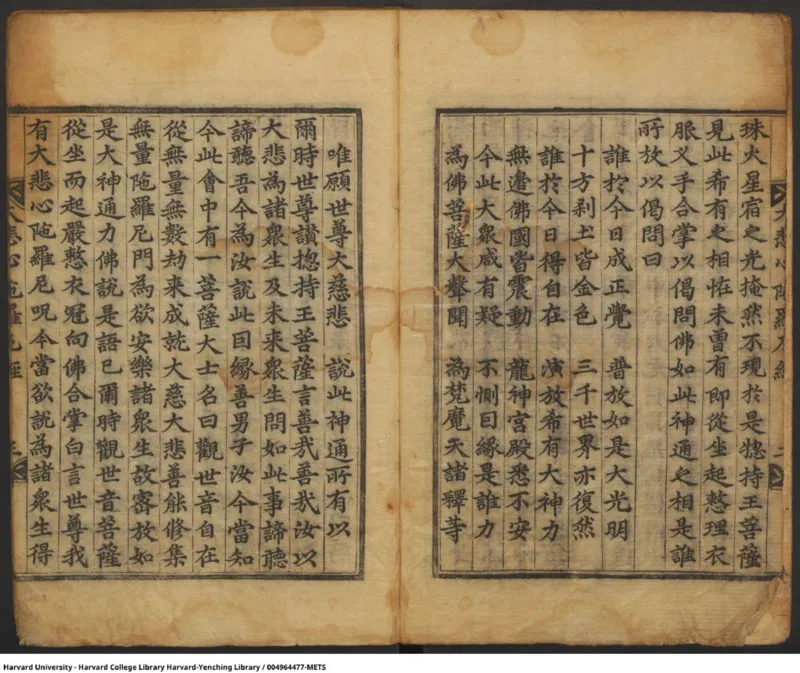 珠火星宿之光掩然不現於是惣持王菩薩
見此希有之相恠未曽有即從坐起整理衣
服叉手合掌以偈問佛如此神通之相是誰
所放以偈問曰
誰扵今日成正覺　普放如是大光明
十方刹土皆金色　三千世界亦復然
誰於今日得自在　演放希有大神力
無邊佛國皆震動　龍神宮殿悉不安
今此大衆咸有疑　不惻因緣是誰力
為佛菩薩大聲聞　為梵魔天諸釋等
大悲心陁羅尼經　二
唯願世尊大慈悲　說此神通所有以
爾時世尊讃揔持王菩薩言善㢤善㢤汝以
大悲為諸衆生及未来衆生問如此事諦聽
諦聽吾今為汝說此因縁善男子汝今當知
今此會中有一菩薩大士名曰觀世音自在
從無量無數劫来成就大慈大悲善能修集
無量陁羅尼門為欲安樂諸衆生故密放如
是大神通力佛說是語已爾時觀世音菩薩
從坐而起嚴整衣冠向佛合掌白言世尊我
有大悲心陁羅尼呪今當欲說為諸衆生得
大悲心陁羅尼經　三
Harvard University - Harvard College Library Harvard-Yenching Library / 004964477-METS